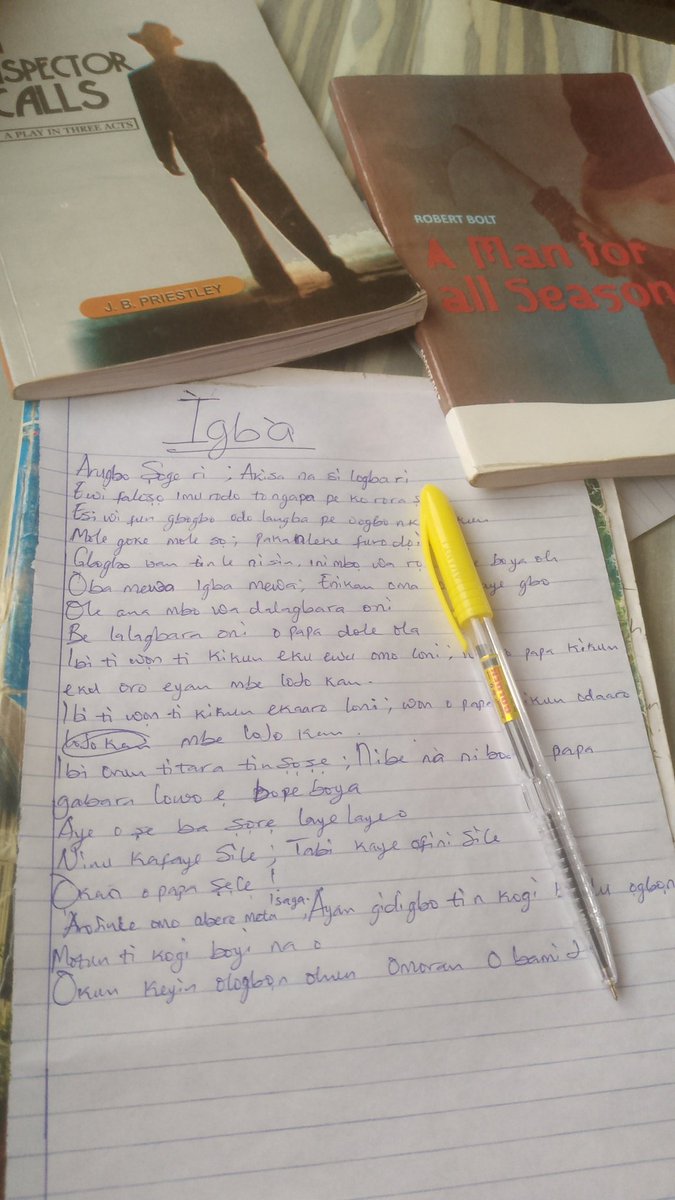 INSPECTOR
CALLS
A PLAY IN THREE ACTS
J. B. PRIESTLEY
ROBERT BOLT
A Man for
all Season
Ìgbà
Arugbo Ṣoge ri ; Akisa na si logba ri
Ewi falaṣọ imu rodo to ngapa pe ko rora
Esi wi fun gbogbo odo langba pe
Mole goke mole sọ; pananlene furo doi
Gbogbo wan tin le nisin, inimbo wa boya ola
Ọba mewa Igba mewa; Enikan oma aye gbo
Ole ana mbo wa dalagbara oni
Be lalagbara oni o papa dole ola
Ibi ti wọn ti kikun eku ewu omo loni ; papa kikun
eku oro eyan mbe lojo kan.
Ibi ti wọn ti kikun ekaaro loni ; won o papa kikun odaaro
lojo kan mbe lojo kan.
Ibi orun titara tin ṣọṣẹ ; Nibe nà papa
gabara lowo ẹ bope boya
Aye o ṣe ba ṣọrẹ laye laye o
Ninu kafaye Silẹ ; Tabi kaye ofini Silẹ
Ọkan o papa ṣẹlẹ !
Arofinle omo abere mota isaga. , Ayan gidigbo tin kogi ogbọn
Motun ti kogi boyi na o
Ọkun keyin ologbọn olun omoran O bami